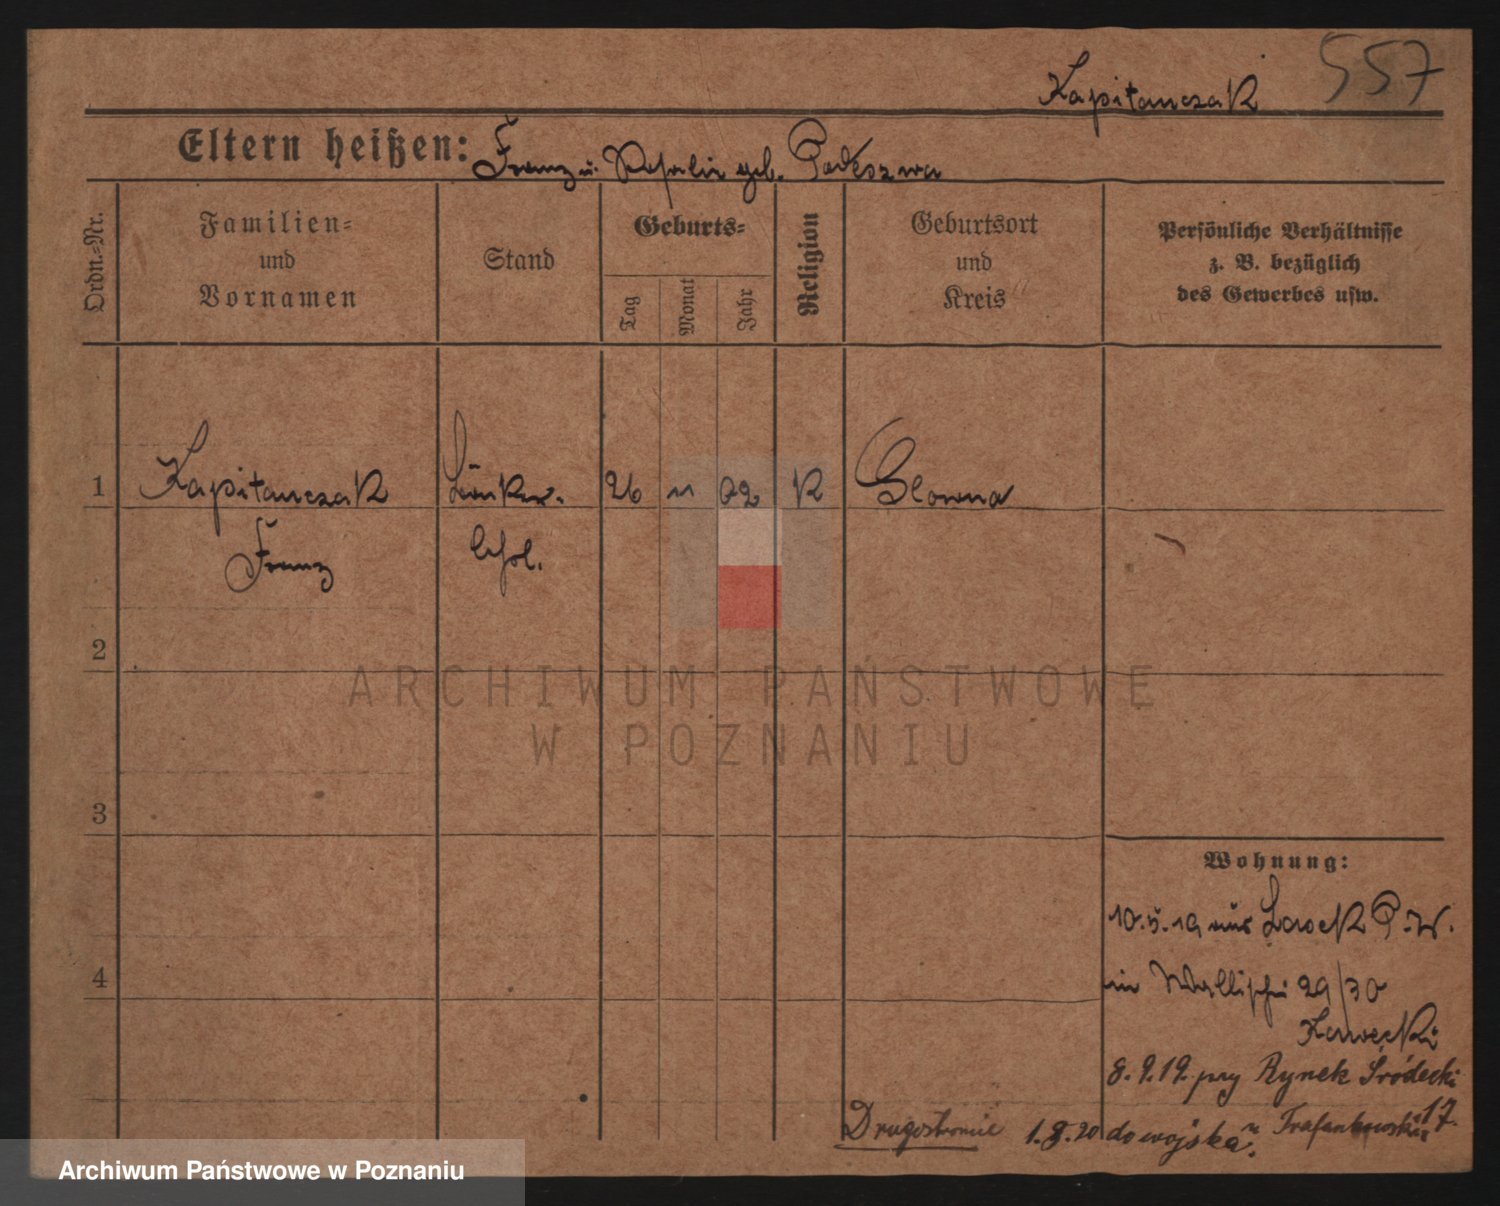 Kapitanczak 557
Eltern heißen: Franz u. Rosalie geb.
Ordn.-Nr.
Familien-
und
Vornamen
Stand
Geburts-
Tag
Monat
Jahr
Religion
Geburtsort
und
Kreis
Persönliche Verhältnisse
z. B. bezüglich
des Gewerbes usw.
1 Kapitanczak 26 11 02 K Glowna
Franz
2
3
4
Wohnung:
10.5.19 aus P.W.
in Wallischei 29/30
Kawecki
8.9.19. przy Rynek Śródecki
17.
Drugostronie 1.8.20 do wojska. u Trafankowski
ARCHIWUM PAŃSTWOWE
W POZNANIU
Archiwum Państwowe w Poznaniu